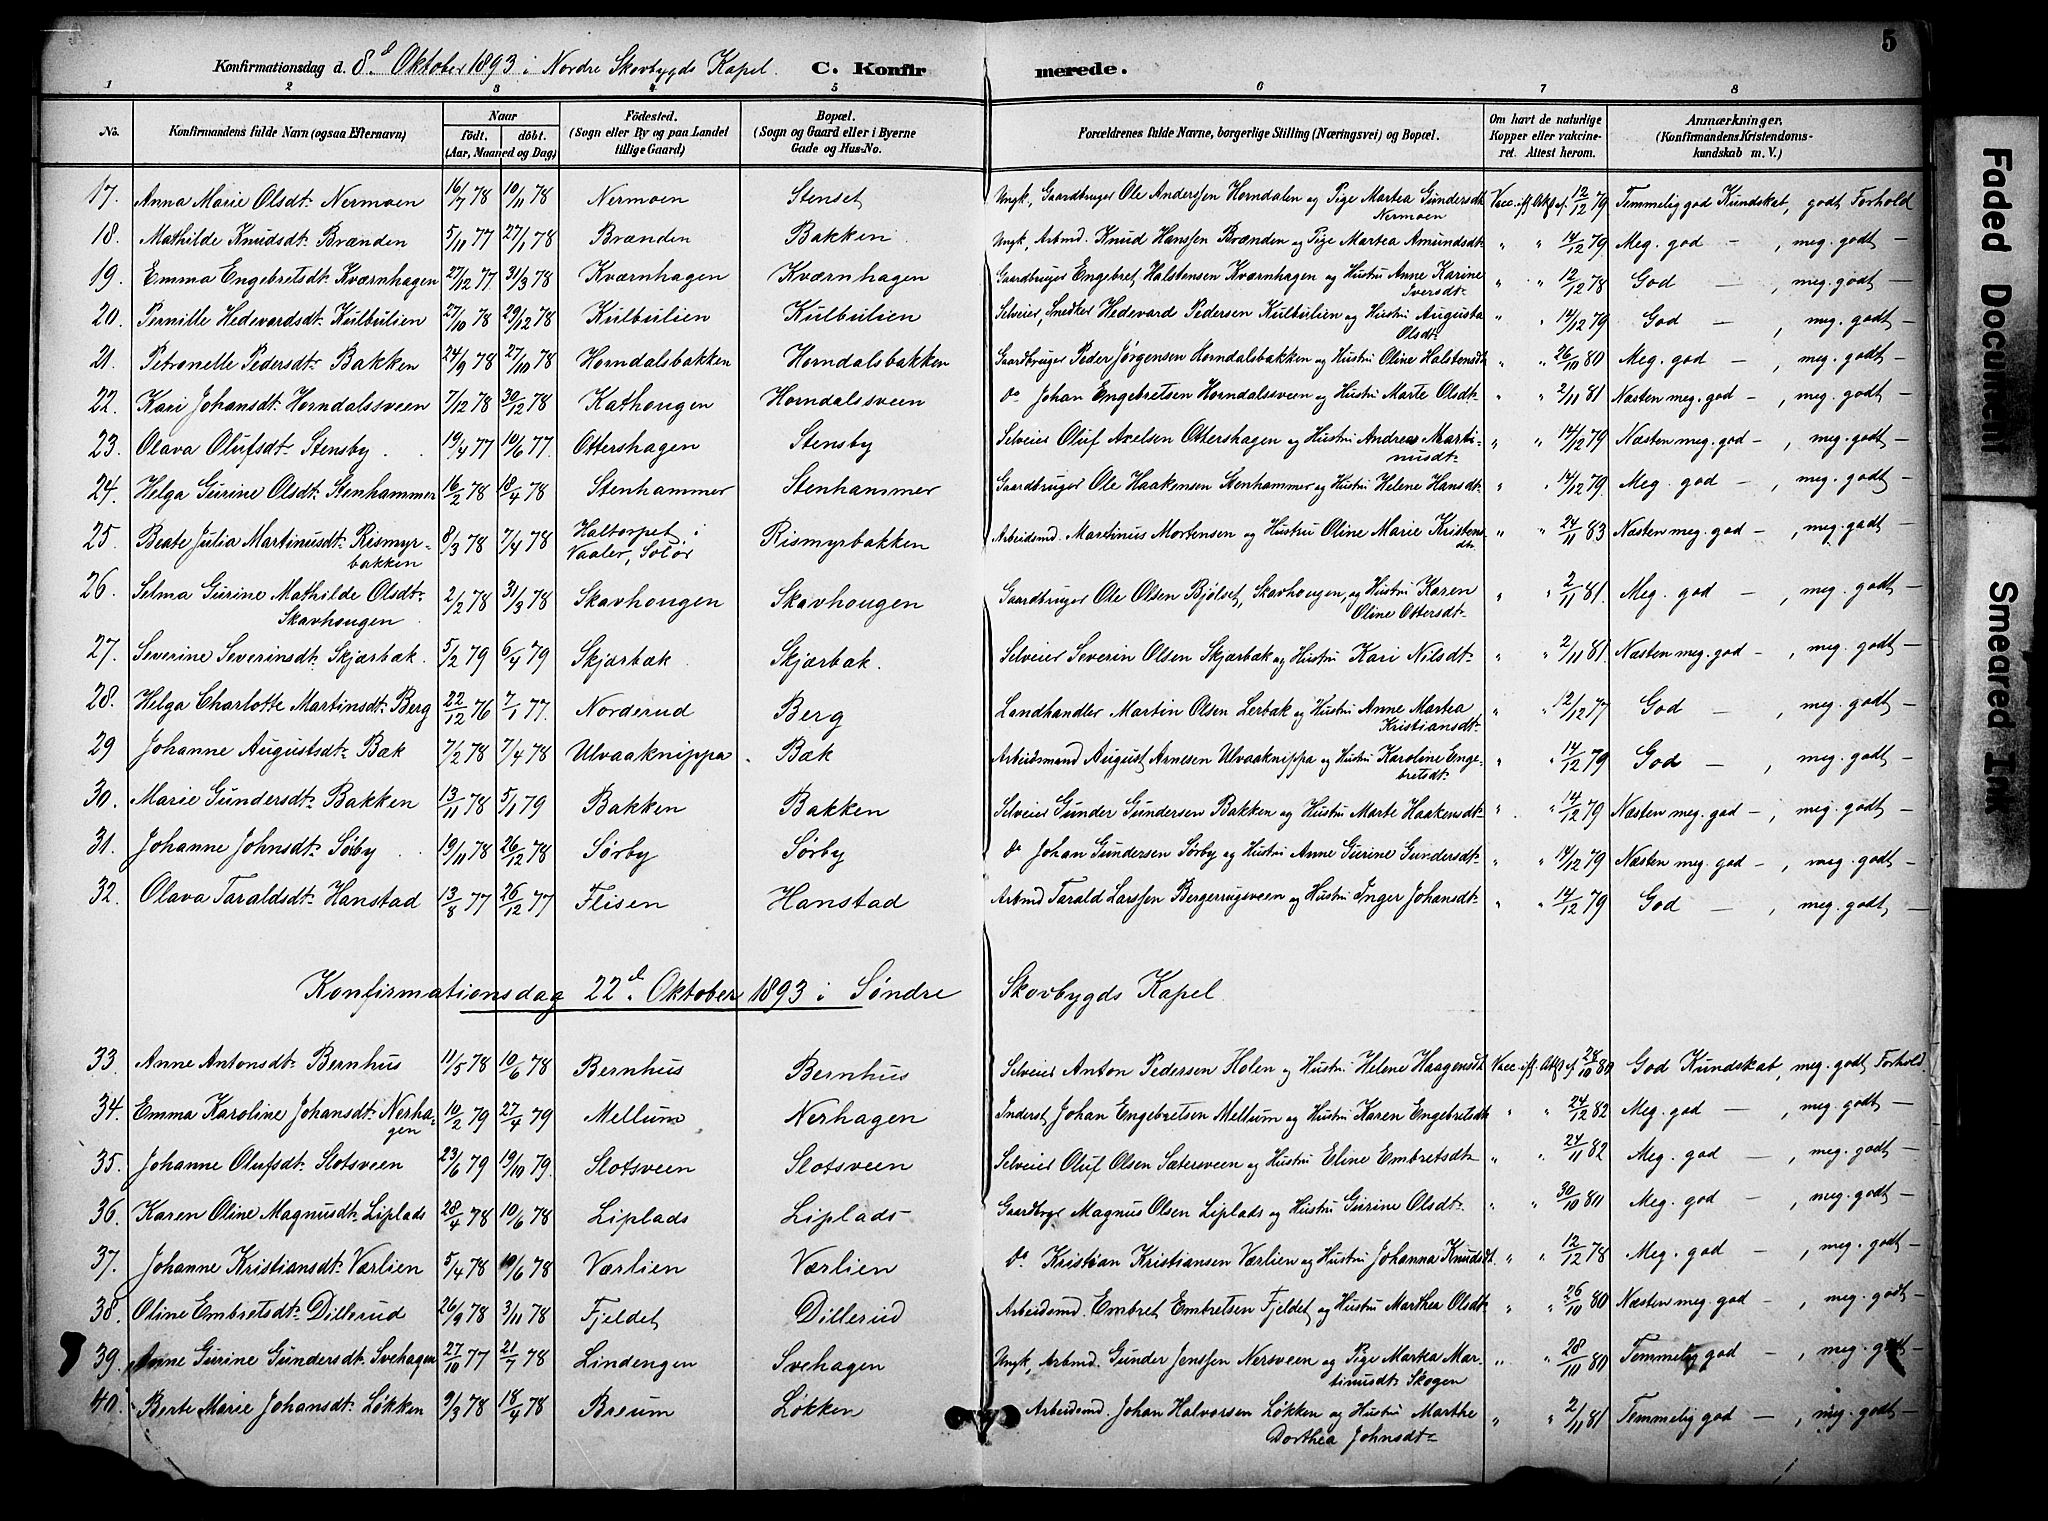 5
Konfirmationsdag d. 8d Oktober 1893 i Nordre Skovbygds Kapel. C. Konfirmerede.
1 2 3 4 5 6 7 8
No. Konfirmandens fulde Navn (ogsaa Efternavn) Naar født, døbt. (Aar, Maaned og Dag) Fødested. (Sogn eller By og paa Landet tillige Gaard) Bopæl. (Sogn og Gaard eller i Byerne Gade og Hus-No. Forældrenes fulde Navne, borgerlige Stilling (Næringsvei) og Bopæl. Om havt de naturlige Kopper eller vakcineret. Attest herom. Anmærkninger, (Konfirmandens Kristendomskundskab m. V.)
17. Anna Marie Olsdt. Nermoen 16/7 78 10/11 78 Nermoen Stenset Ungk, Gaardbruger Ole Anderssen Horndalen og Pige Martea Gundersdt. Nermoen Vacc. ifl. Att. af 12/12 79 Temmelig god Kundskab, godt Forhold
18. Mathilde Knudsdt. Brænden 5/11 77 27/1 78 Brænden Bakken Ungk, Arbmd. Knud Hanssen Brænden og Pige Martea Amundsdt. " " 14/12 79 Meg. god — , meg. godt —
19. Emma Engebretsdt. Kværnhagen 27/12 77 31/3 78 Kværnhagen Kværnhagen Gaardbruger Engebret Halstensen Kværnhagen og Hustru Anne Karine Iversdt. " " 12/12 78 God — , meg. godt —
20. Pernille Hedevardsdt. Kulbulien 27/10 78 29/12 78 Kulbulien Kulbulien Selveier, Snedker Hedevard Pedersen Kulbulien og Hustru Augusta Olsdt. " " 14/12 79 God — , meg. godt —
21. Petronelle Pedersdt. Bakken 24/9 78 27/10 78 Horndalsbakken Horndalsbakken Gaardbruger Peder Jørgensen Horndalsbakken og Hustru Oline Halstensdt. " " 26/10 80 Meg. god — , meg. godt —
22. Kari Johansdt. Horndalssveen 7/12 78 30/12 78 Kathougen Horndalssveen do Johan Engebretsen Horndalssveen og Hustru Marte Olsdt. " " 2/11 81 Næsten meg. god — , meg. godt —
23. Olava Olufsdt. Stensby 19/4 77 10/6 77. Ottershagen Stensby Selveier Oluf Axelsen Ottershagen og Hustru Andrea Martinusdt. " " 14/12 79 Næsten meg. god — , meg. godt —
24. Helga Gurine Olsdt. Stenhammer 16/2 78 18/4 78 Stenhammer Stenhammer Gaardbruger Ole Haakensen Stenhammer og Hustru Helene Hansdt. " " 14/12 79 Meg. god — , meg. godt —
25. Beate Julia Martinusdt. Rismyrbakken 8/3 78 7/4 78 Haltorpet i Vaaler, Solør Rismyrbakken Arbeidsmd. Martinus Mortensen og Hustru Oline Marie Kristensdt. " " 24/11 83 Næsten meg. god — , meg. godt —
26. Selma Gurine Mathilde Olsdt. Skavhougen 2/2 78 31/3 78 Skavhougen Skavhougen Gaardbruger Ole Olsen Bjølset, Skavhougen, og Hustru Karen Oline Ottersdt. " " 2/11 81. Meg. god — , meg. godt —
27. Severine Severinsdt. Skjærbæk. 5/2 79 6/4 79 Skjærbæk. Skjærbæk. Selveier Severin Olsen Skjærbæk og Hustru Kari Nilsdt. " " 2/11 81 Næsten meg. god — , meg. godt —
28. Helga Charlotte Martinsdt. Berg 22/12 76 7/1 77. Norderud Berg Landhandler Martin Olsen Lerbæk og Hustru Anne Martea Kristiansdt. " " 12/12 77 God — , meg. godt —
29 Johanne Augustsdt. Bæk 7/2 78 7/4 78 Ulvaaknippa Bæk Arbeidsmand August Arnesen Ulvaaknippa og Hustru Karoline Engebretsdt. " " 14/12 79 God — , meg. godt —
30. Marie Gundersdt. Bakken 13/11 78 5/1 79 Bakken Bakken Selveier Gunder Gundersen Bakken og Hustru Marte Haakensdt. " " 14/12 79 Næsten meg. god — , meg. godt —
31. Johanne Johnsdt. Sørby 19/11 78 26/12 78 Sørby Sørby do Johan Gundersen Sørby og Hustru Anne Gurine Gundersdt. " " 14/12 79 Næsten meg. god — , meg. godt —
32. Olava Taraldsdt. Hanstad 13/8 77 26/12 77 Flisen Hanstad Arbmd Tarald Larssen Bergerrugsveen og Hustru Inger Johansdt. " " 14/12 79 God — , meg. godt —
Konfirmationsdag 22d Oktober 1893 i Søndre Skovbygds Kapel.
33. Anne Antonsdt. Bernhus 11/5 78 10/6 78 Bernhus Bernhus Selveier Anton Pedersen Holen og Hustru Helene Haagensdt. Vacc. ifl. Att. af 28/10 80 God Kundskab, meg. godt Forhold
34. Emma Karoline Johansdt. Nerhagen 10/2 79 27/4 79 Mellum Nerhagen Inderst Johan Engebretsen Mellum og Hustru Karen Engebretsdt. " " 24/12 82 Meg. god — , meg. godt —
35. Johanne Olufsdt. Slotsveen 23/6 79 19/10 79. Slotsveen Slotsveen Selveier Oluf Olsen Sætersveen og Hustru Eline Embretsdt. " " 24/11 82 Meg. god — , meg. godt —
36. Karen Oline Magnusdt. Liplads 28/4 78 10/6 78 Liplads Liplads Gaardbrgr Magnus Olsen Liplads og Hustru Gurine Olsdt. " " 30/10 80 Meg. god — , meg. godt —
37. Johanne Kristiansdt. Værlien 5/4 78 10/6 78 Værlien Værlien do Kristian Kristiansen Værlien og Hustru Johanna Knudsdt. " " 12/12 78 Meg. god — , meg. godt —
38. Oline Embretsdt. Dillerud 26/9 78 3/11 78 Fjeldet Dillerud Arbeidsmd. Embret Embretsen Fjeldet og Hustru Marthea Olsdt. " " 26/10 80 Næsten meg. god — , meg. godt —
39. Anne Gurine Gundersdt. Svehagen 27/10 77 21/7 78 Lindengen Svehagen Ungk, Arbmd. Gunder Jenssen Nersveen og Pige Martea Martinusdt. Skogen " " 28/10 80 Temmelig god — , meg. godt —
40. Berte Marie Johansdt. Løkken 9/3 78 18/4 78 Breum Løkken Arbeidsmd. Johan Halvorsen Løkken og Hustru Marthe Dorthea Johnsdt. " " 2/11 81 Temmelig god — , meg. godt —
Faded Document
Smeared Ink